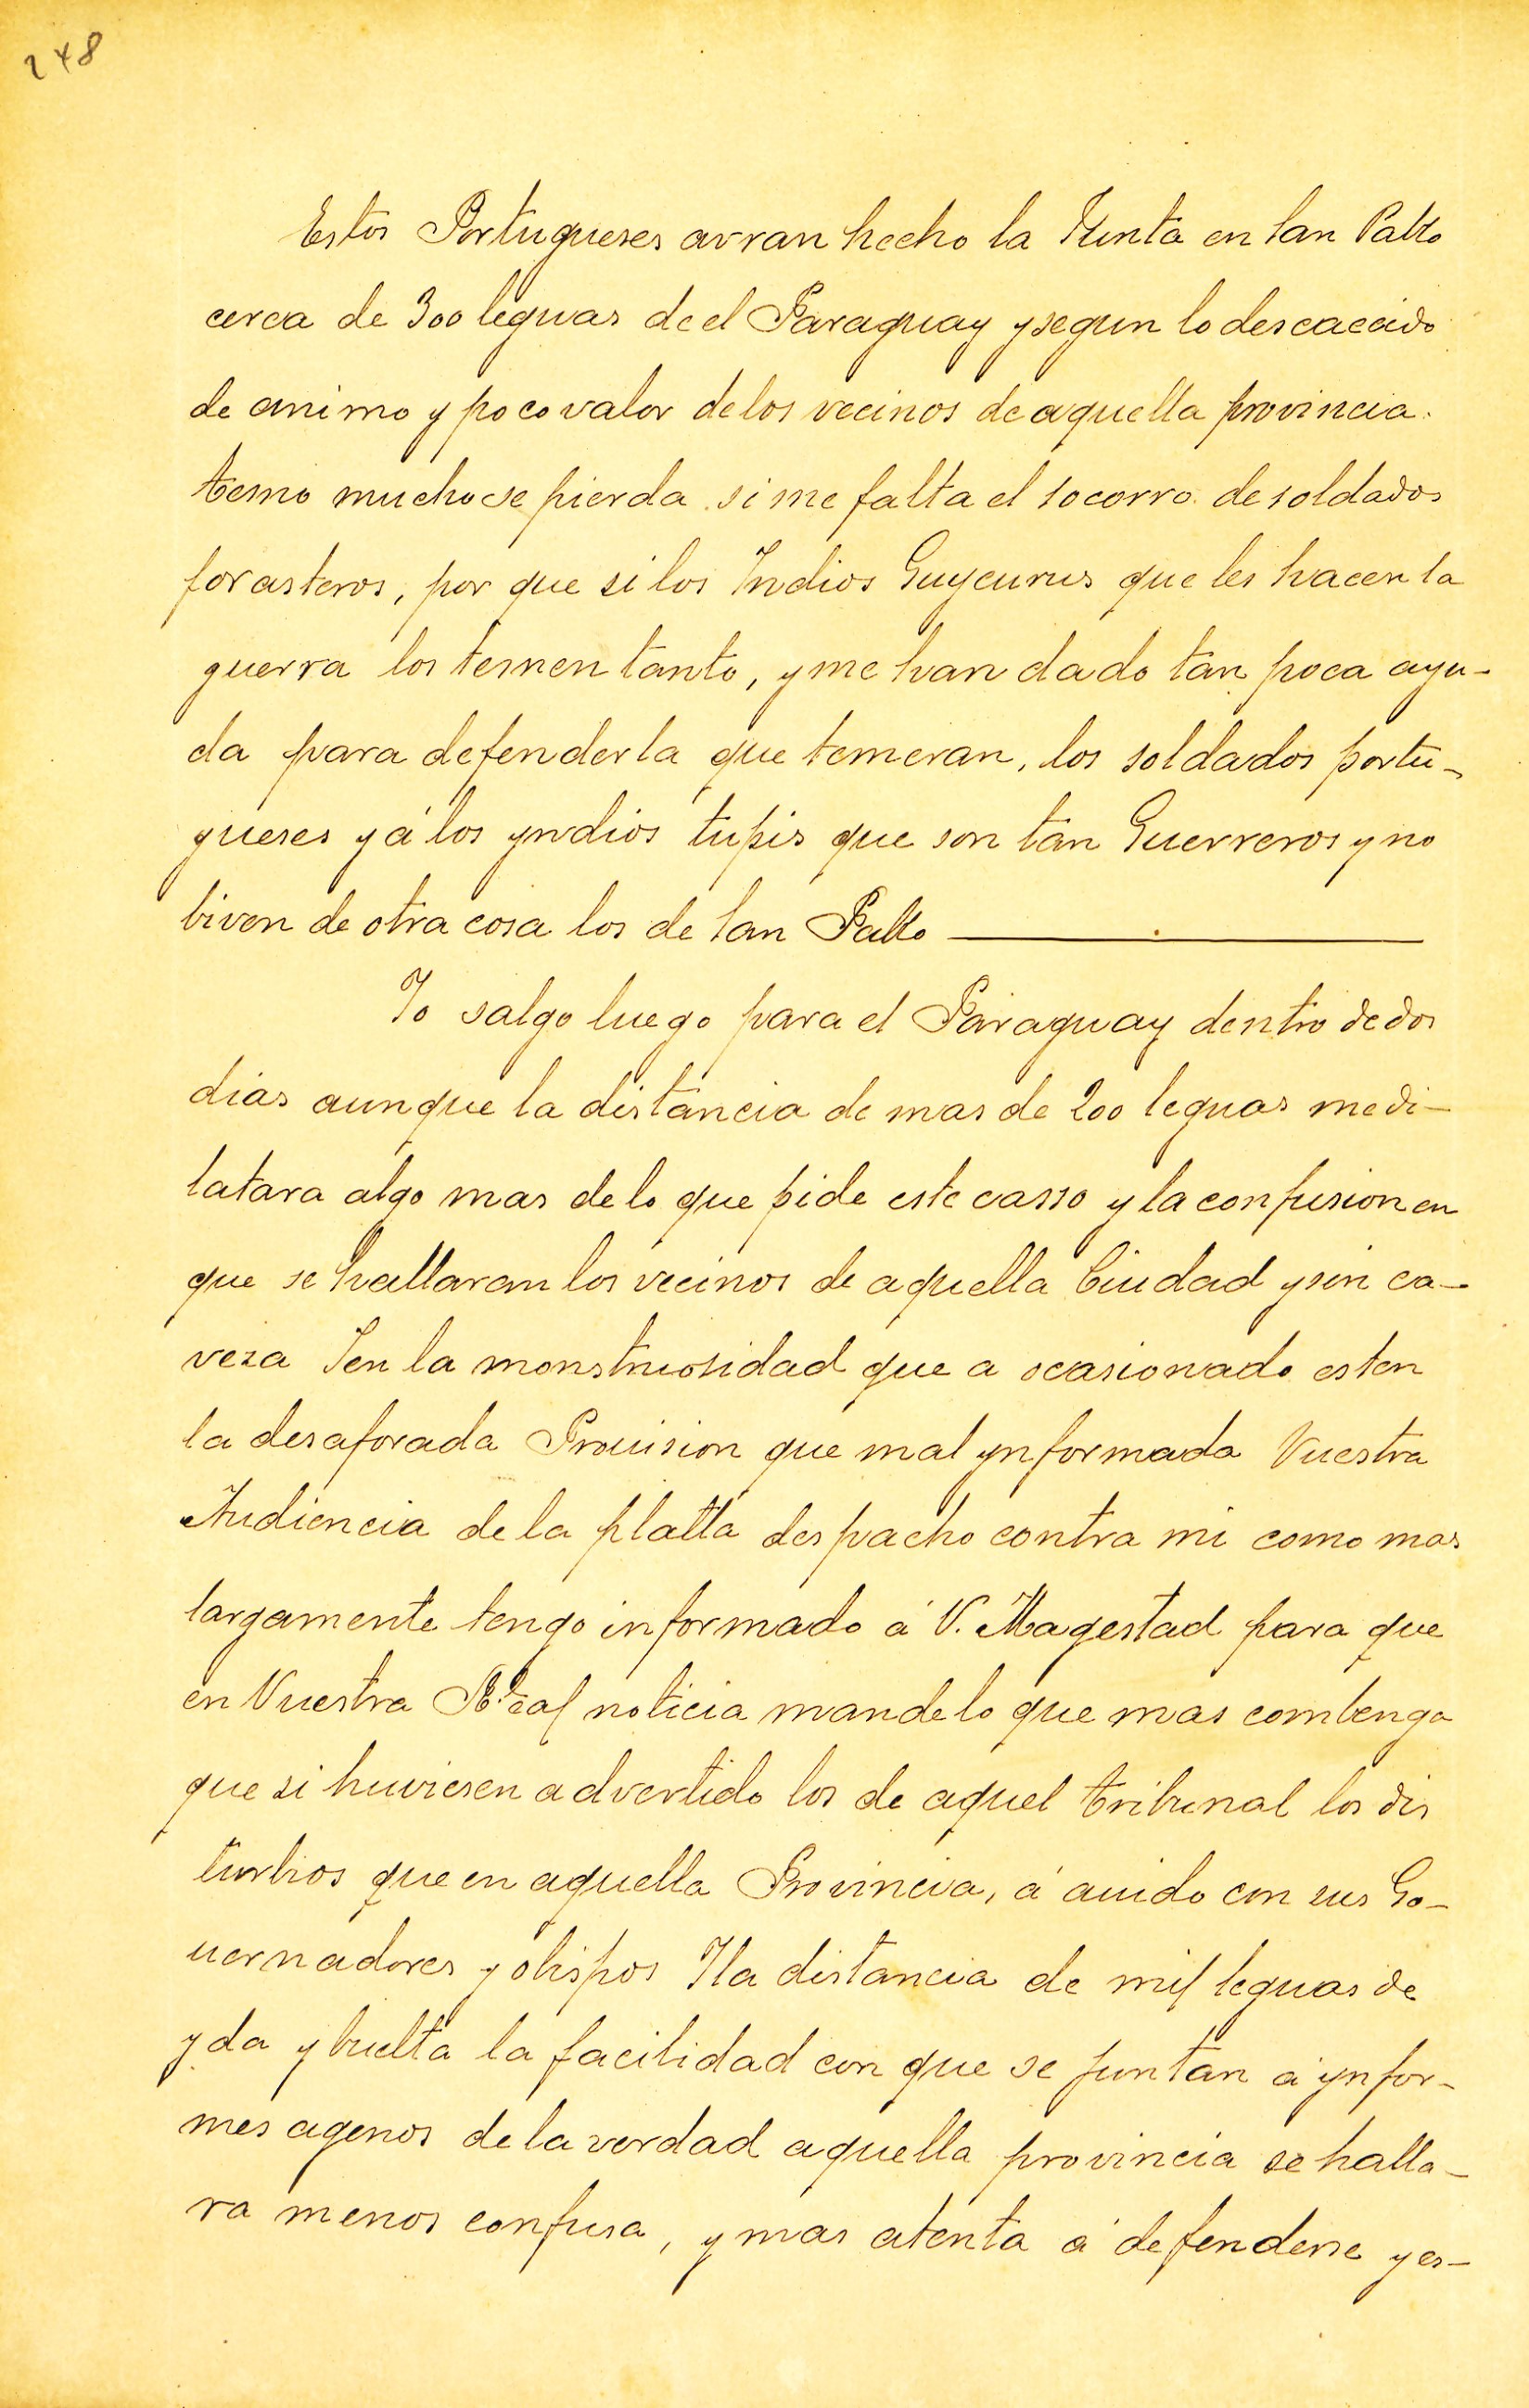 248
Estos Portugueses avran hecho la Junta en san Pablo
cerca de 300 leguas de el Paraguay y segun lo descaecido
de animo y poco valor de los vecinos de aquella provincia.
temo mucho se pierda si me falta el socorro de soldados
forasteros, por que si los Indios Guycurus que les hacen la
guerra los temen tanto, y me han dado tan poca ayu-
da para defenderla que temeran, los soldados portu-
gueses y á los yndios tupis que son tan Guerreros y no
biven de otra cosa los de san Pablo
Yo salgo luego para el Paraguay dentro de dos
dias aunque la distancia de mas de 200 leguas me di-
latara algo mas de lo que pide este casso y la confusion en
que se hallaran los vecinos de aquella Ciudad y sin ca-
veza Y en la monstruosidad que a ocasionado esten
la desaforada Provision que mal ynformada Vuestra
Audiencia de la platta despacho contra mi como mas
largamente tengo informado á V. Magestad para que
en Vuestra Real noticia mande lo que mas combenga
que si huviesen advertido los de aquel tribunal los dis
turbios que en aquella Provincia, á auido con sus Go-
uernadores y obispos Y la distancia de mil leguas de
yda y buelta la facilidad con que se juntan á ynfor-
mes agenos de la verdad aquella provincia se halla-
ra menos confusa, y mas atenta á defenderse y es-